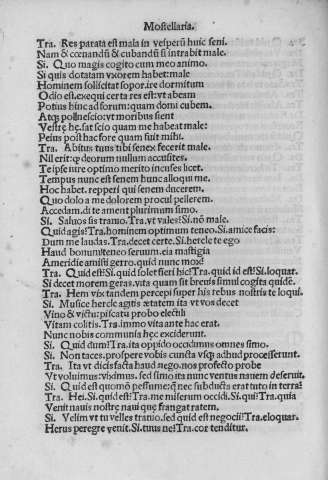 Mostellaria.
Tra. Res parata est mala in vesperũ huic seni.
Nam & cœnandũ & cubandũ si intrabit male.
Si. Quo magis cogito cum meo animo.
Si quis dotatam vxorem habet: male
Hominem sollicitat sopor. ire dormitum
Odio est. exequi certa res est: vt abeam
Potius hinc ad forum: quam domi cubem.
Atq; pol nescio: vt moribus sient
Vestrę he. sat scio quam me habeat male:
Peius post hac fore quam fuit mihi.
Tra. Abitus tuus tibi senex fecerit male.
Nil erit: ꝙ deorum nullum accusites.
Te ipse iure optimo merito incuses licet.
Tempus nunc est senem hunc alloqui me.
Hoc habet. repperi qui senem ducerem.
Quo dolo a me dolorem procul pellerem.
Accedam. di te ament plurimum simo.
Si. Saluos sis tranio. Tra. vt vales? Si. nõ male.
Quid agis? Tra. hominem optimum teneo. Si. amice facis:
Dum me laudas. Tra. decet certe. Si. hercle te ego
Haud bonum teneo seruum. eia mastigia
Ameridie amisti gerro. quid nunc mox?
Tra. Quid est? Si. quid solet fieri hic? Tra. quid id est? Si. loquar.
Si decet morem geras. vita quam sit breuis simul cogita quidē.
Tra. Hem vix tandem percepi super his rebus nostris te loqui.
Si. Musice hercle agitis ætatem ita vt vos decet
Vino & victu: piscatu probo electili
Vitam colitis. Tra. immo vita ante hac erat.
Nunc nobis communia hęc exciderunt.
Si. Quid dum? Tra. ita oppido occidimus omnes simo.
Si. Non taces. prospere vobis cuncta vsq; adhuc processerunt.
Tra. Ita vt dicis facta haud nego. nos profecto probe
Vt voluimus: viximus. sed simo ita nunc ventus nauem deseruit.
Si. Quid est quomõ pessume: q̃ nec subducta erat tuto in terra?
Tra. Hei. Si. quid est? Tra. me miserum occidi. Si. qui? Tra. quia
Venit nauis nostrę naui quę frangat ratem.
Si. Velim vt tu velles tranio. sed quid est negocii? Tra. eloquar.
Herus peregre venit. Si. tuus ne? Tra. cor tenditur.